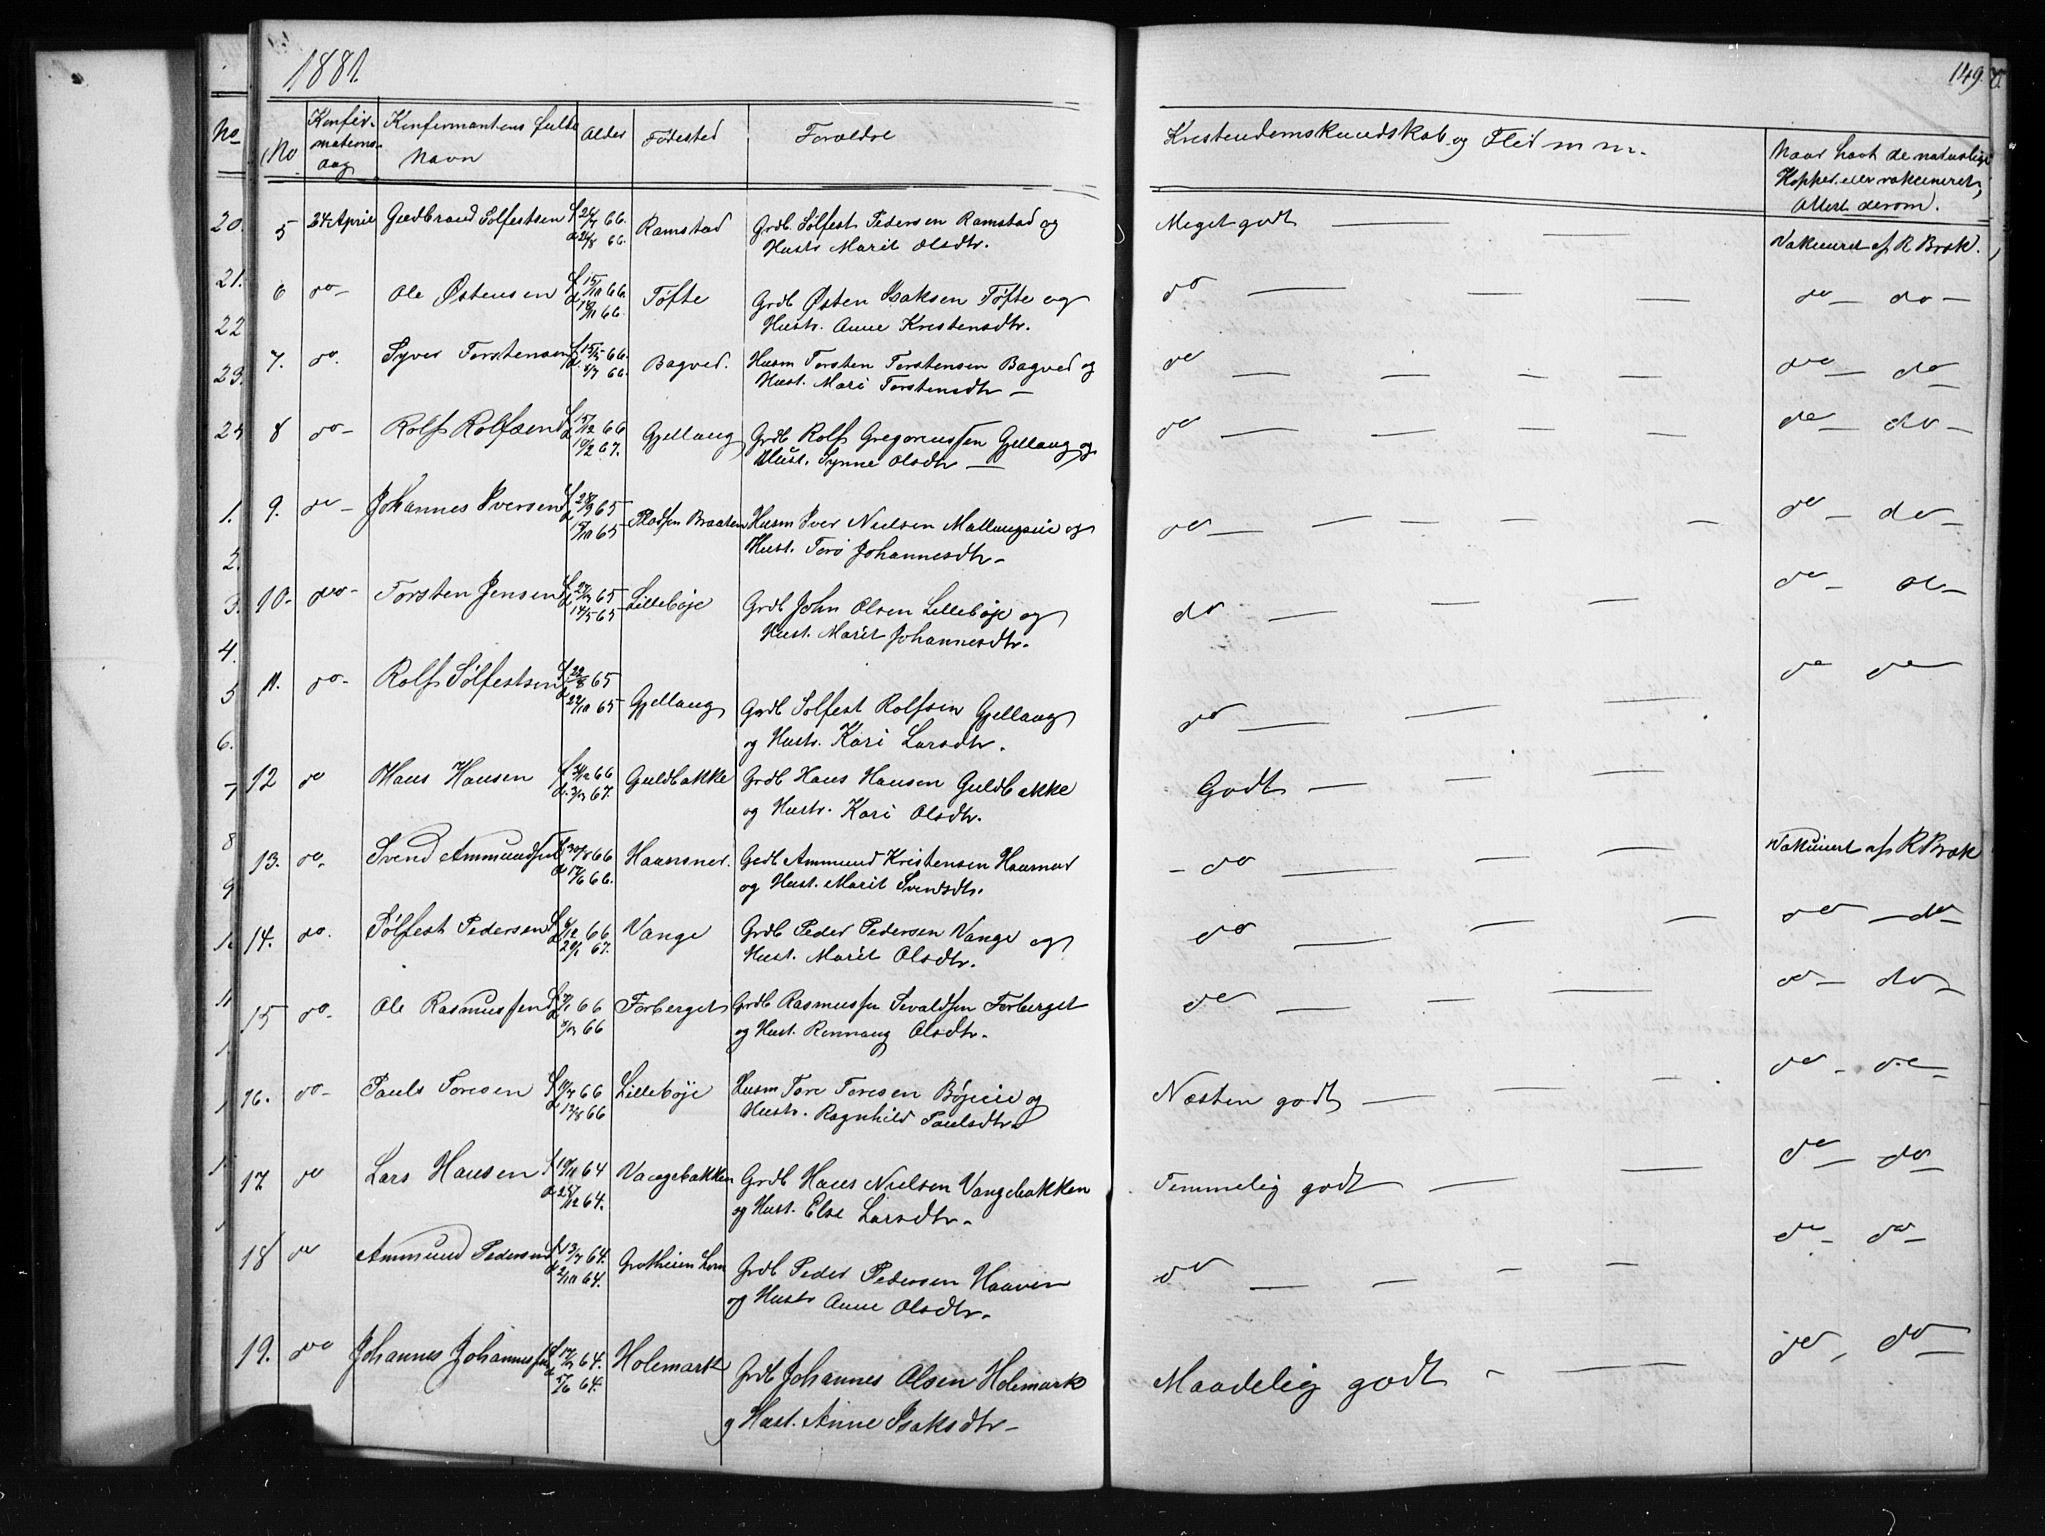 1881.
149.
No
No
Konfir-
mations-
dag
Konfirmantens fulde
Navn
Alder
Födested
Forældre
Kristendomskundskab og Flid m m.
Naar havt de naturlige
Kopper eller vakcineret,
Attest derom.
20.
21.
22
23.
24
1.
2.
3.
4.
5
6.
7
8
9
5 24 April Gudbrand Solfestsen f 26/7 66. Ramstad Grdb. Solfest Pedersen Ramstad og Meget godt — — Vakcineret af R Bræk.
d 26/8 66. Hustr Marit Olsdtr.
6 do- Ole Østensen f 15/10 66. Tofte Grdb Østen Isaksen Tøfte og do — — — do — do —
d 18/11 66. Hustr. Anne Kristensdtr.
7. do. Syver Torstensen f 15/5 66. Bagved. Husm Torsten Torstensen Bagved og do — — — — do — do —
d. 8/7 66. Hust. Mari Torstensdtr —
8 do- Rolf Rolfsen f 15/12 66 Gjellaug Grdb Rolf Gregoriussen Gjellaug og do — — — — do — do —
d 10/2 67. Hust. Synne Olsdtr —
9. do- Johannes Iversen f 28/9 65 Pladsen Braaten Husm Iver Nielsen Mallangseie og do — — — — — do — do —
d 15/10 65 Hust. Toro Johannesdtr-
10. do- Torsten Jensen f 27/3 65 Lillebøje Grdb John Olsen Lillebøje og do — — — do — do —
d 14/5 65 Hust. Marit Johannesdtr.
11. do- Rolf Solfestsen f 29/8 65 do do
d 22/10 65 Gjellaug Grdb Solfest Rolfsen Gjellaug do — — —
og Hustr. Kari Larsdtr.
12 do Hans Hansen f 31/12 66 Guldbakke Grdb Hans Hansen Guldbakke Godt — — —
d. 3/3 67. og Hustr. Kari Olsdtr.
13. do- Svend Ammundsen f 30/5 66 Grdb Ammund Kristensen - do — — — Vakcineret af R Bræk
d 17/6 66. og Hust. Marit Svendsdtr.
14. do. Solfest Pedersen f 6/12 66 Vange Grdb Peder Pedersen Vange og do — — — do — do
d 20/1 67. Hust. Marit Olsdtr.
15 do. Ole Rasmussen 66 Forberget Grdb Rasmus Sevaldsen Forberget do — — — do — do —
66 og Hust. Rønnaug Olsdtr.
16. do- Pauls Toresen f 10/7 66 Lillebøje Husm Tore Toresen Bøjeie og Næsten godt — — — do - do —
d 12/8 66 Hustr. Ragnhild Paulsdtr.
17 do Lars Hansen f 19/11 64 Vangebakken Grdb Hans Nielsen Vangebakken Temmelig godt — — do — do
d 25/12 64. og Hust. Else Larsdtr.
18 do Ammund Pedersen f 13/7 64. Grdb Peder Pedersen Haaven do — — — — do — do —
d 2/10 64. og Hustr Anne Olsdtr.
19. do Johannes Johannessen f 17/3 64. Holemark Grdb Johannes Olsen Holemark Maadelig godt - — — do - do —
d 5/6 64. og Hust. Anne Isaksdtr-